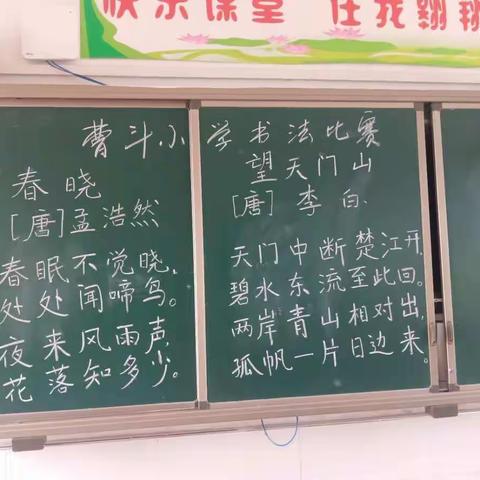 快乐课堂 任我翱翔
曹斗小学书法比赛
春晓
[唐]孟浩然
春眠不觉晓,
处处闻啼鸟。
夜来风雨声,
花落知多少。
望天门山
[唐] 李白
天门中断楚江开,
碧水东流至此回。
两岸青山相对出,
孤帆一片日边来。